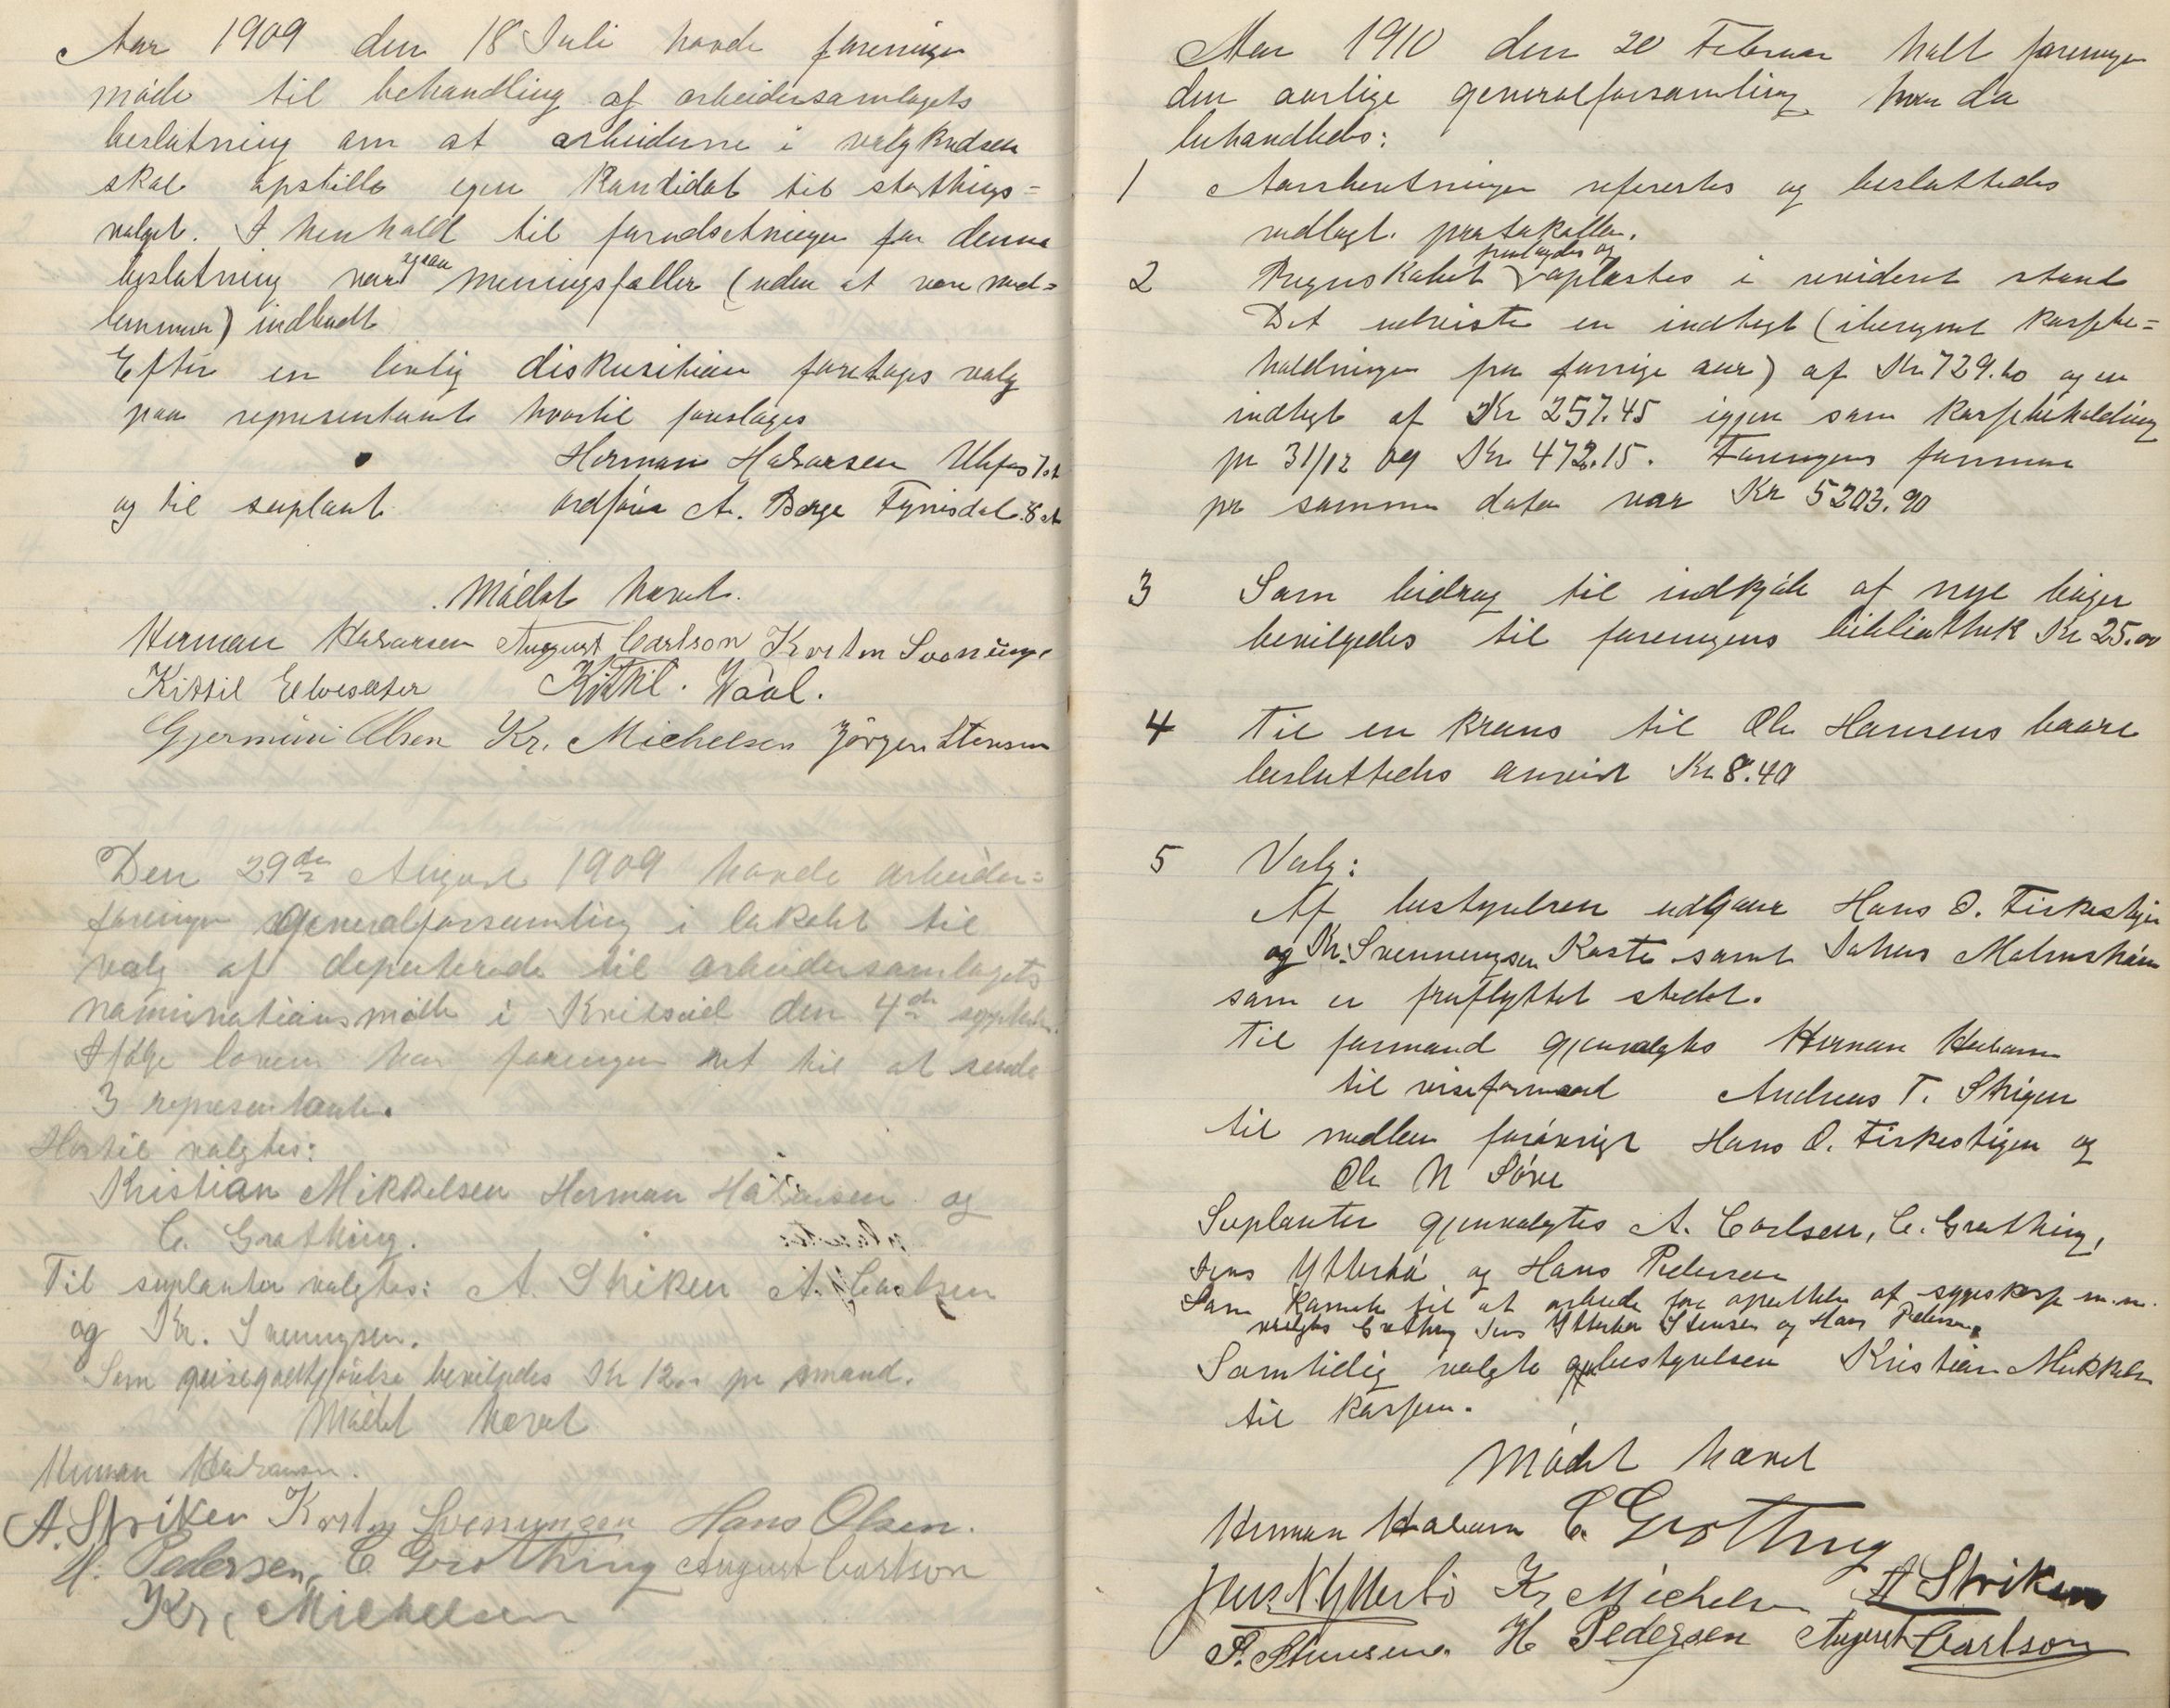 Aar 1909 den 18 Juli havde foreningen
möde til behandling af arbeidersamlagets
beslutning om at arbeiderne i valgkredsen
skal opstille egen kandidat til storthings=
valget. I henhold til forudsetningen for denne
beslutning var ogsaa meningsfeller (uden at vere med=
lemmer) indbudt
Efter en livlig diskusition foretoges valg
paa representant hvortil foresloges
Herman Halvorsen Ulefos 7 st
og til suplant ordförer A. Berge Fyrisdal 8 st
Mödet hevet.
Herman Halvorsen August Carlson Korsten Svenungs.
Kittil Elvesæter Kittil. Vaal.
Gjermuni Olsen Kr. Michelsen Jörgen Stensen
Den 29de August 1909 havde arbeider=
foreningen generalforsamling i lokalet til
valg af deputerede til arbeidersamlagets
nominationsmöte i Kviteseid den 4de september.
Ifölge loven har foreningen ret til at sende
3 representanter.
Hertil valgtes:
Kristian Mikkelsen Herman Halvorsen og
C. Grothing.
Til suplanter valgtes: A. Striken A. Carlsen
og Kr. Svenungsen.
Som reisegodtgjörelse bevilgedes Kr 12.00 pr mand.
Mödet hevet
Herman Halvorsen.
A. Striken Korsten Svenungsen Hans Olsen.
H. Pedersen, C Grothing August Carlson
Kr. Michelsen
Aar 1910 den 20 Februar holt foreningen
den aarlige generalforsamling hvor da
behandledes:
1 Aarsberetningen refereres og besluttedes
vedlagt protokollen.
2 Regnskabet fremlagdes og oplæstes i revideret stand
Det udviste en indtegt (iberegnet kassebe=
holdningen fra forrige aar) af Kr 729.60 og en
indtegt af Kr 257.45 igjen som kassebeholdning
pr 31/12 09 Kr 472.15. Foreningens formue
pr samme dato var Kr 5203.90
3 Som bidrag til indkjöb af nye böger
bevilgedes til foreningens bibliothek Kr 25.00
4 Til en krans til Ole Hansens baare
besluttedes anvist Kr 8.40
5 Valg:
Af bestyrelsen udgaar Hans O. Fiskestigen
og Kr. Svennungsen Kaste samt Johus Malmsham
som er fraflyttet stedet.
Til formand gjenvalgtes Herman Halvorsen
til viseformand Andreas T. Strigen
til medlem forövrigt Hans O. Fiskestigen og
Ole N Söve
Suplanter gjenvalgtes A. Carlsen, C. Grothing,
Jens Ytterbö og Hans Pedersen
Som komite til at arbeide for oprettelse af sygekasse m.m.
valgtes Grothing Jens Ytterbö Stensen og Hans Pedersen.
Samtidig valgte bestyrelsen Kristian Mikkelsen
til kasserer.
Mödet hævet
Herman Halvorsen C. Grothing
Jens N. Ytterbö Kr Michelsen A Striken
J. Stensen. H Pedersen August Carlson